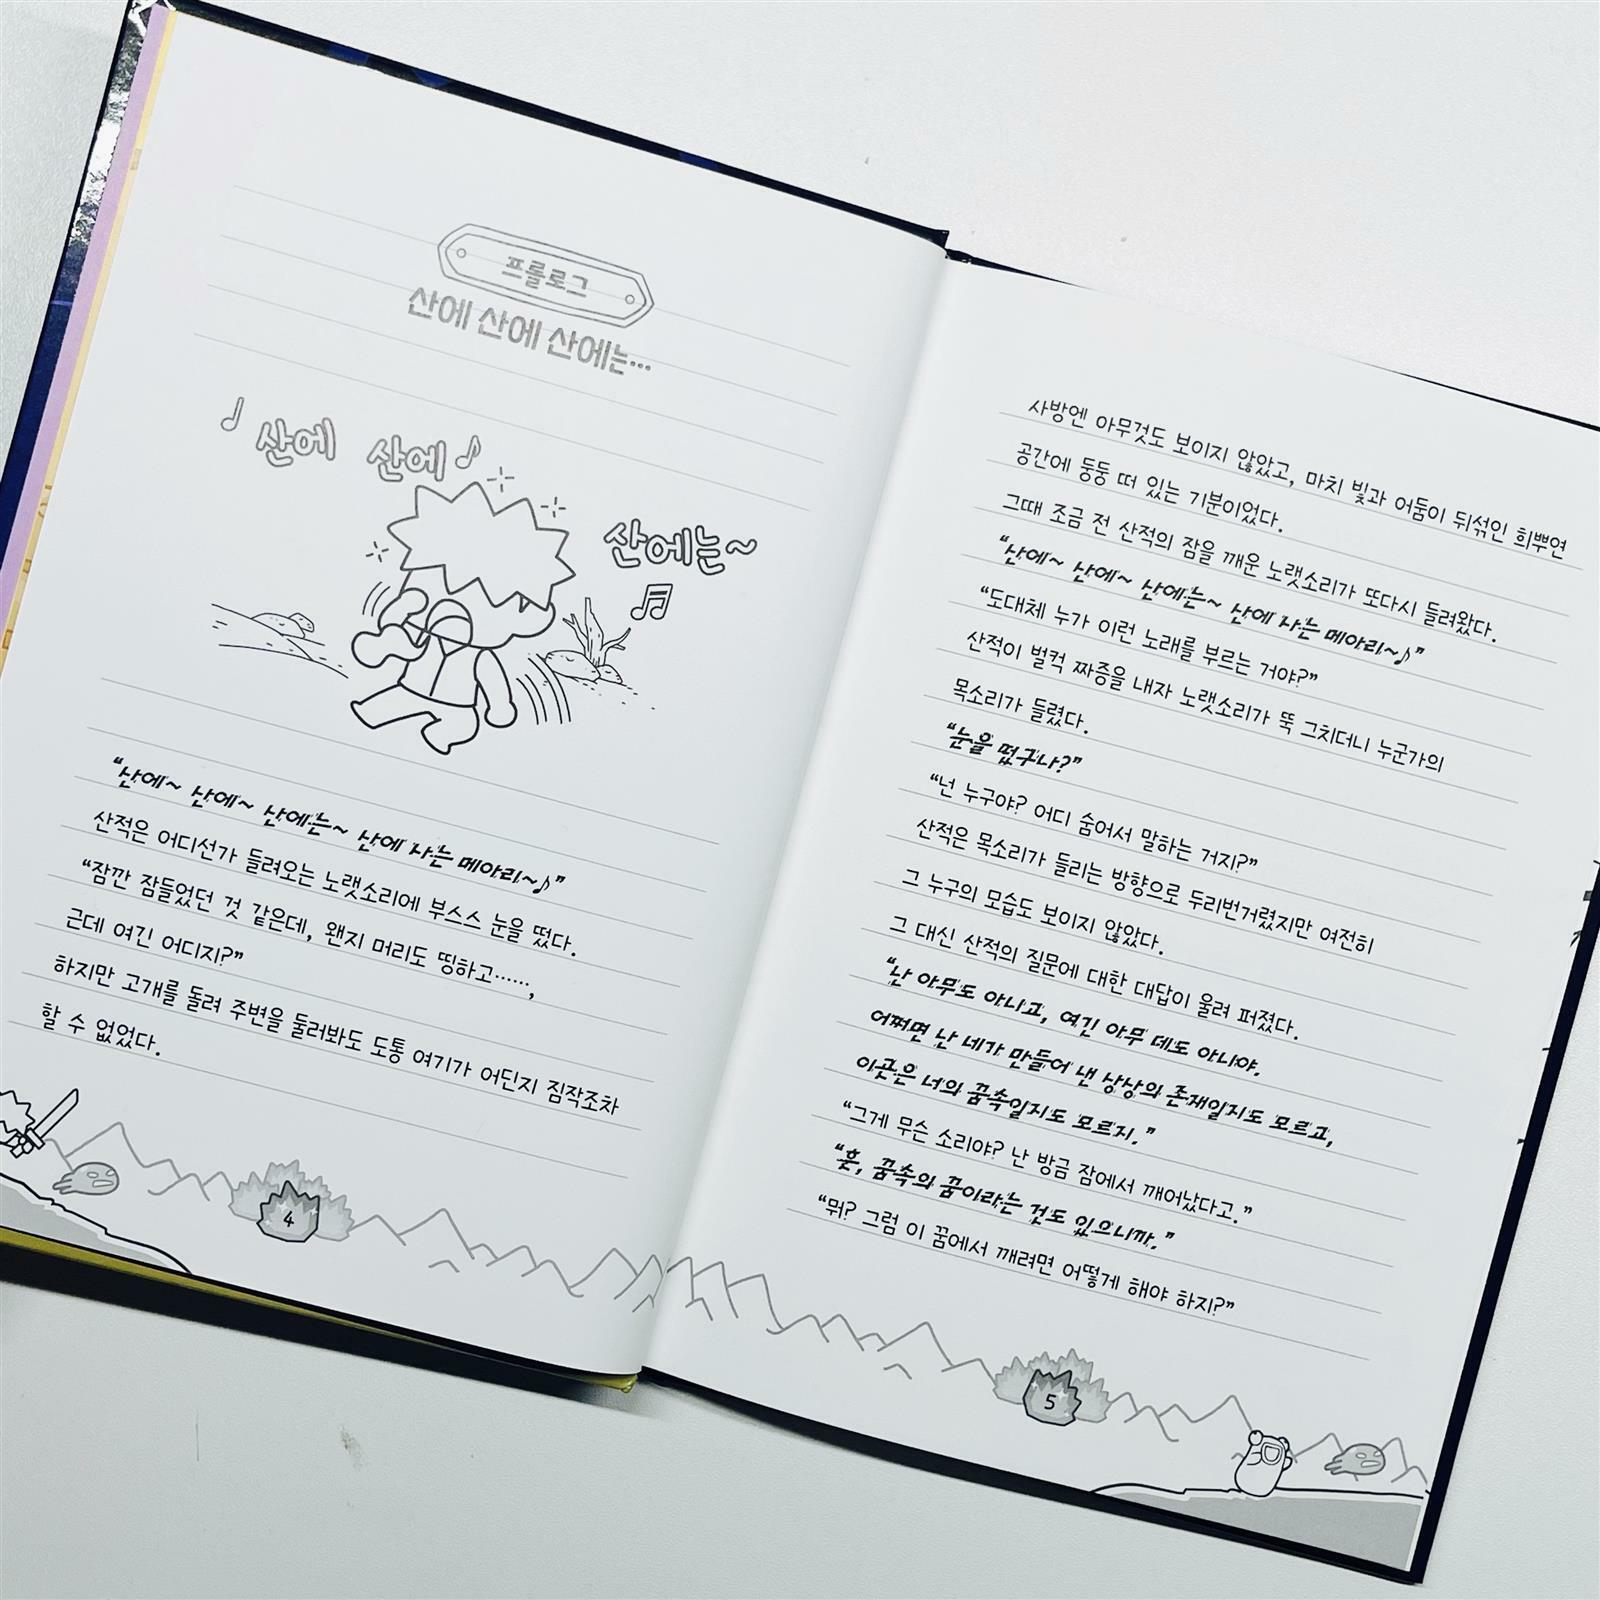 프롤로그
산에 산에 산에는…
산에 산에
산에는~
“산에~ 산에~ 산에는~ 산에 사는 메아리~♪”
산적은 어디선가 들려오는 노랫소리에 부스스 눈을 떴다.
“잠깐 잠들었던 것 같은데, 왠지 머리도 띵하고……,
근데 여긴 어디지?”
하지만 고개를 돌려 주변을 둘러봐도 도통 여기가 어딘지 짐작조차
할 수 없었다.
4
사방엔 아무것도 보이지 않았고, 마치 빛과 어둠이 뒤섞인 희뿌연
공간에 둥둥 떠 있는 기분이었다.
그때 조금 전 산적의 잠을 깨운 노랫소리가 또다시 들려왔다.
“산에~ 산에~ 산에는~ 산에 사는 메아리~♪”
“도대체 누가 이런 노래를 부르는 거야?”
산적이 벌컥 짜증을 내자 노랫소리가 뚝 그치더니 누군가의
목소리가 들렸다.
“눈을 떴구나?”
“넌 누구야? 어디 숨어서 말하는 거지?”
산적은 목소리가 들리는 방향으로 두리번거렸지만 여전히
그 누구의 모습도 보이지 않았다.
그 대신 산적의 질문에 대한 대답이 울려 퍼졌다.
“난 아무도 아니고, 여긴 아무 데도 아니야.
어쩌면 난 네가 만들어 낸 상상의 존재일지도 모르고,
이곳은 너의 꿈속일지도 모르지.”
“그게 무슨 소리야? 난 방금 잠에서 깨어났다고.”
“흣, 꿈속의 꿈이라는 것도 있으니까.”
“뭐? 그럼 이 꿈에서 깨려면 어떻게 해야 하지?”
5